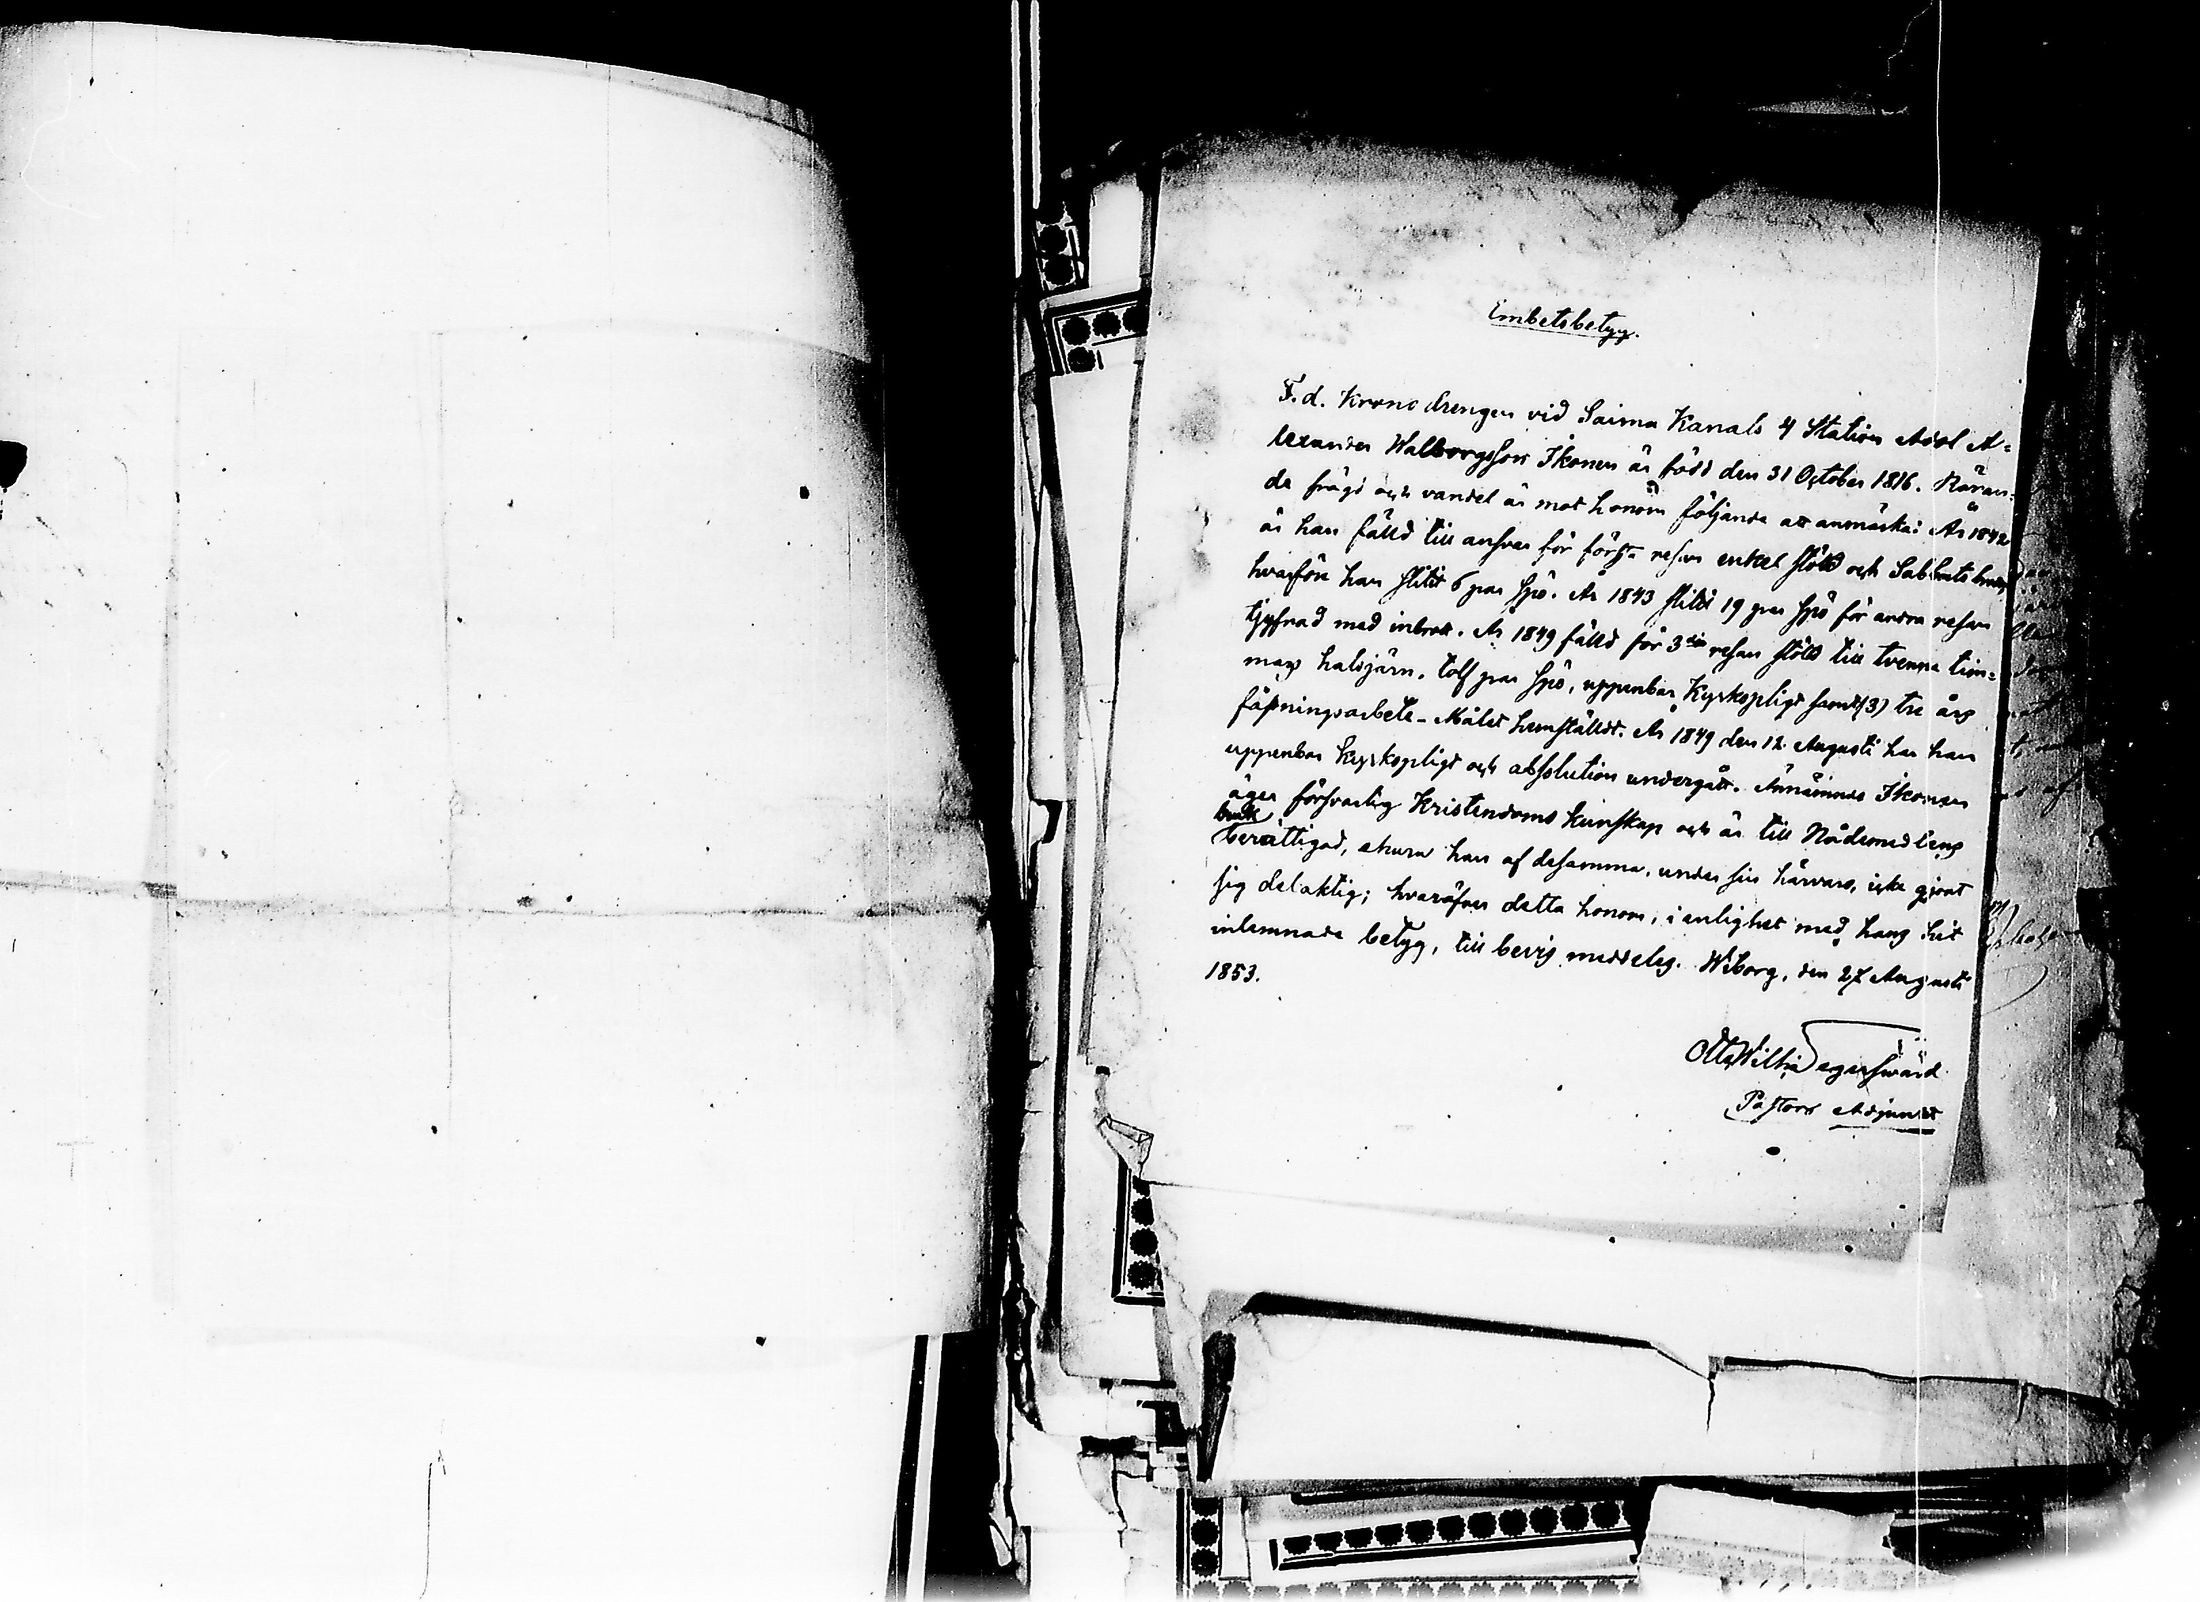 Embetsbetyg.
F. d. Krono drengen vid Saima Kanals 4 Station Adol A-
lexander Walborgsson Ikonen är född den 31 October 1816. Röran-
de frägd och vandel är mot honom följande att anmärka: År 1842
är han fälld till ansvar för första resan enkel stöld och Sabbatsbrott,
hvarföre han slitit 6 par spö. År 1843 slitit 19 par spö för andra resan
tjufnad med inbrott. År 1849 fälld för 3dje resan stöld till tvenne tim-
mars halsjärn, tolf par spö, uppenbar Kyrkopligt samt (3) tre års
fästningsarbete - Målet hemställdt. År 1849 den 12 Augusti har han
uppenbar kyrkopligt och absolution undergått. Ikonen
äger försvarlig Kristendoms kunskap och är till Nådemedlens
bruk
berättigad, ehuru han af desamma, under sin härvaro, icke gjort
sig delaktig; hvaröfver detta honom, i enlighet med hans hit
inlemnade betyg, till bevis meddelas. Wiborg, den 27 Augusti
1853.
Otto Wilh: Segerswärd
Pastors Adjunct